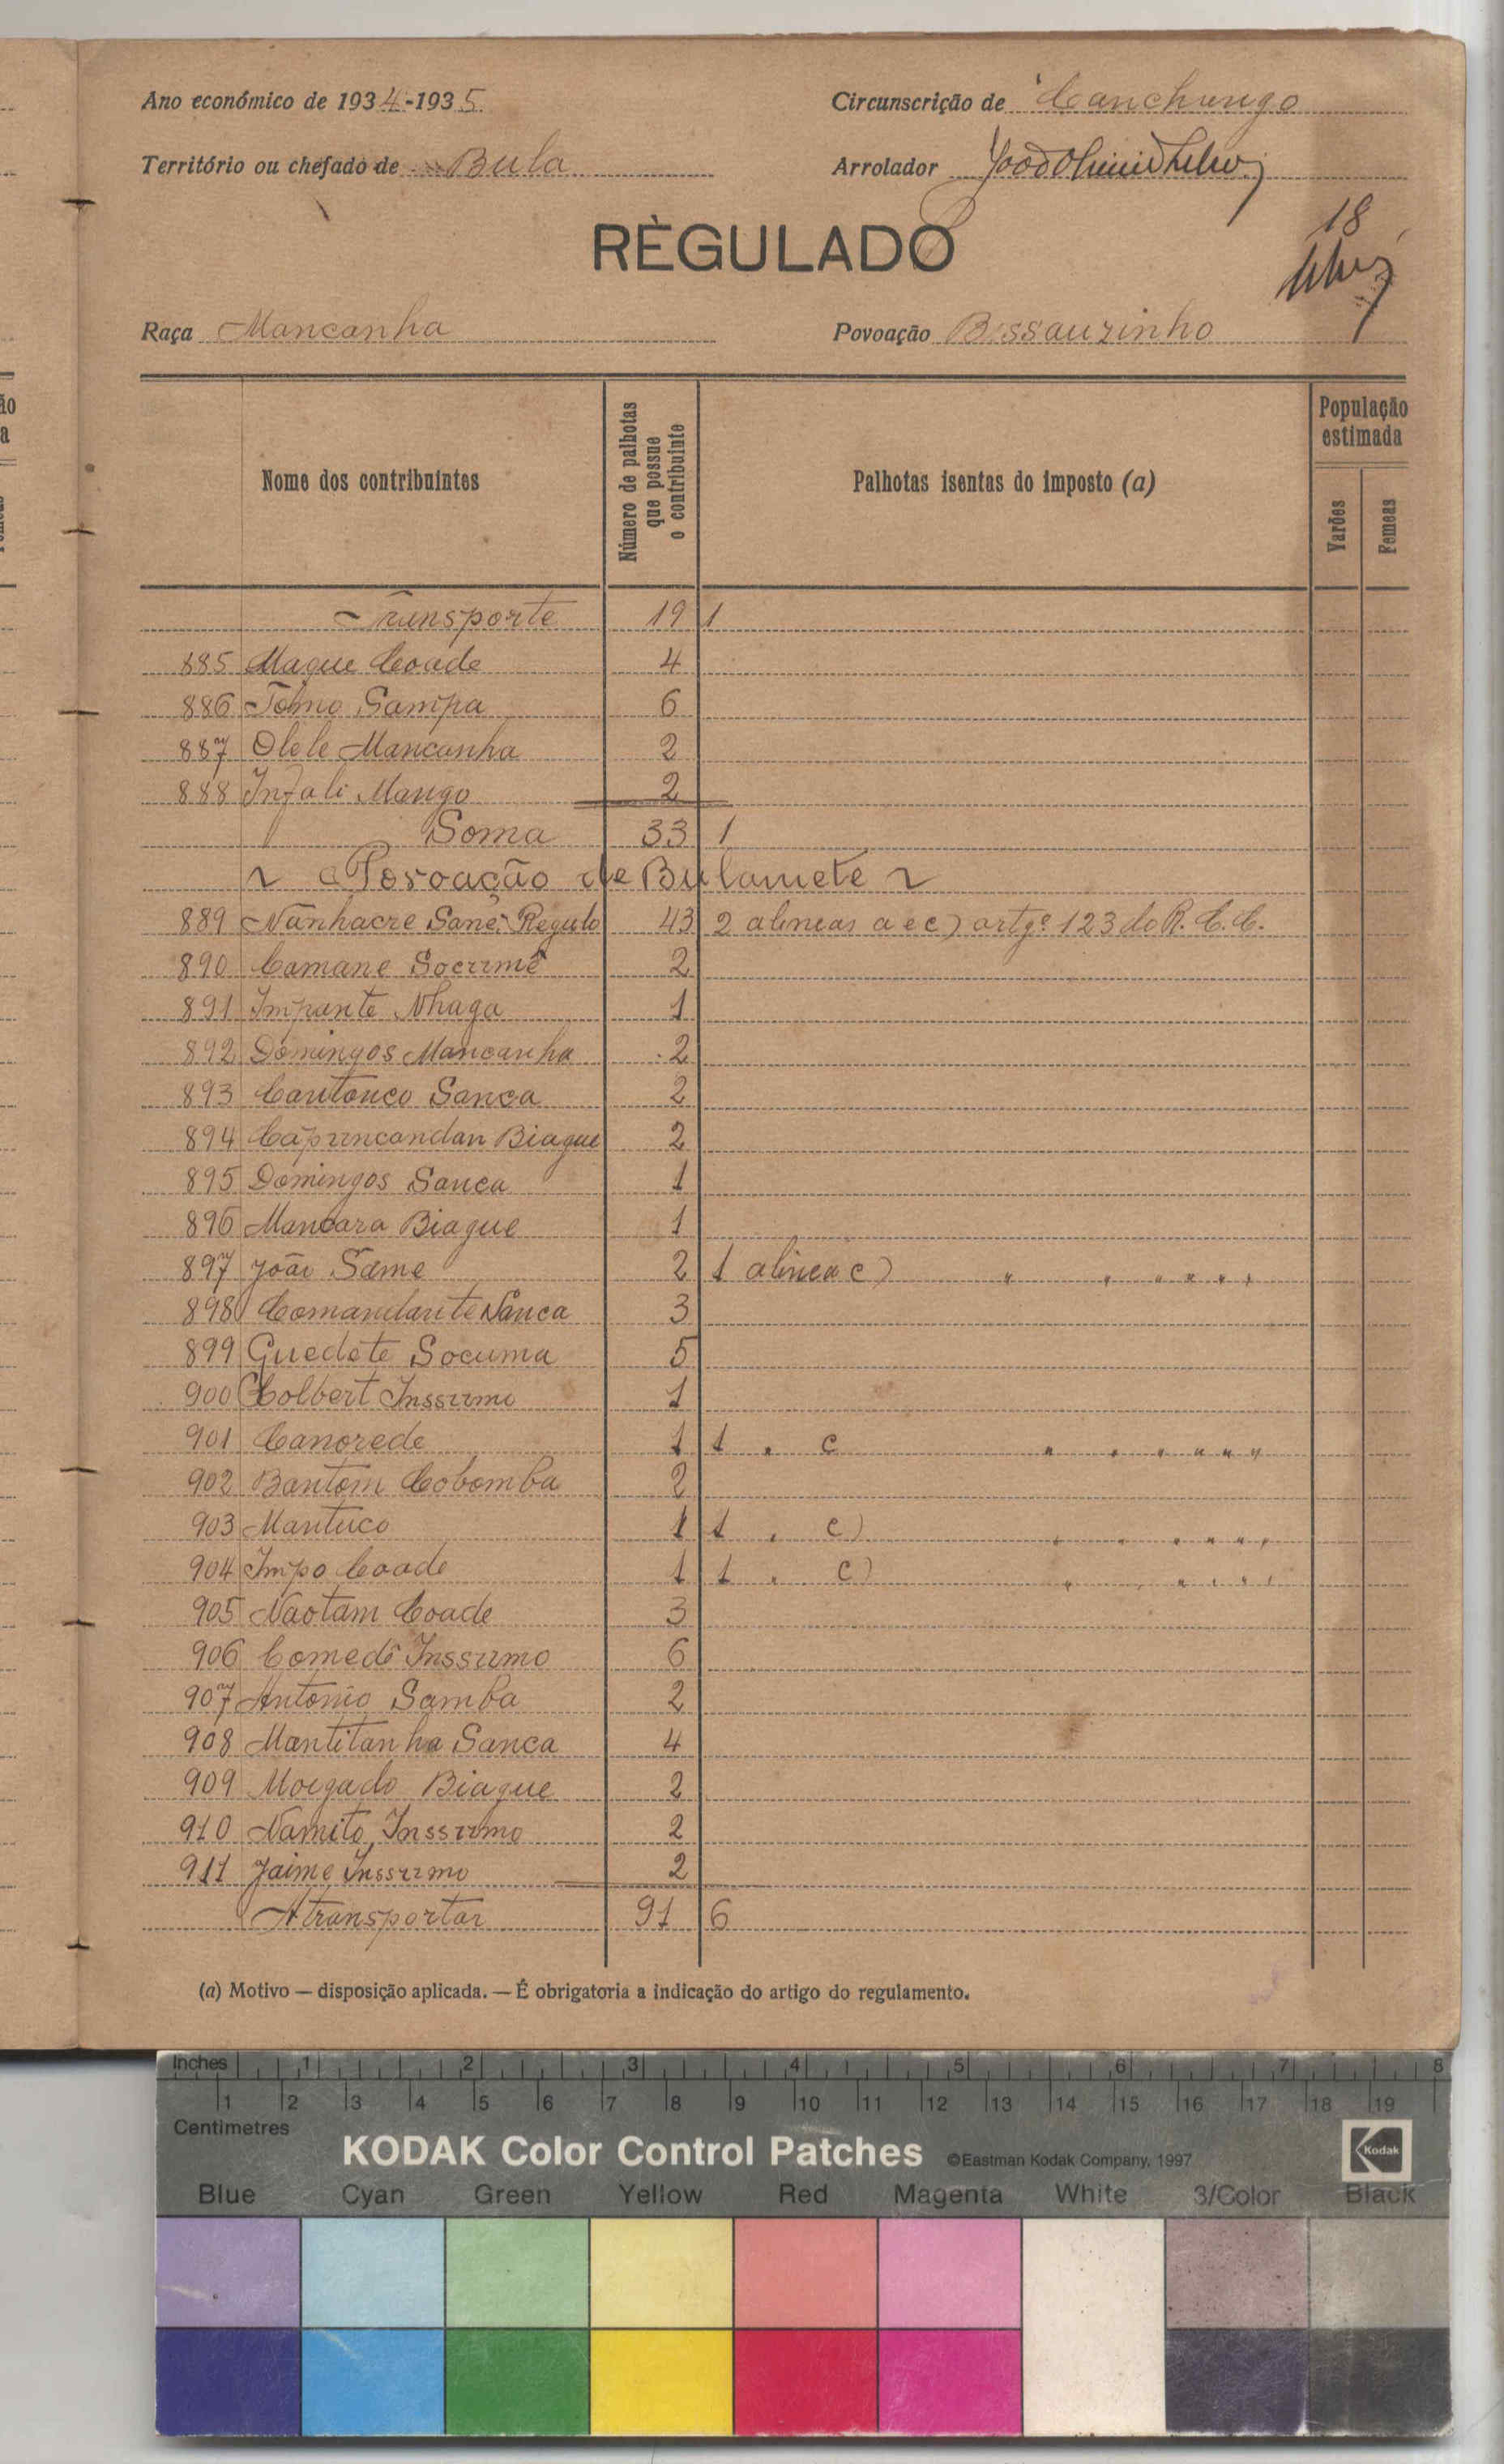 Ano económico de 1934-1935
Circunscrição de Canchungo
Território ou chefado de Bula
Arrolador
18
RÈGULADO
Raça Mancanha
Povoação Bissauzinho
Nome dos contribuintes
Número de palhotas que possue o contribuinte
Palhotas isentas do imposto (a)
População estimada
Varões
Femeas
Transporte 19 1
885 Maque Coade 4
886 Tomo Sampa 6
887 Olele Mancanha 2
888 Infali Mango 2
Soma 33 1
Povoação de Bulamete
889 Nanhacre Sanê, Regulo 43 2 alineas a e c) artgº 123 do R. C. C.
890 Camane Socumê 2
891 Impante Nhaga 1
892 Domingos Mancanha 2
893 Cautonco Sanca 2
894 Capuncandan Biague 2
895 Domingos Sanca 1
896 Mancara Biague 1
897 João Same 2 1 alinea c) " " " " " "
898 Comandante Nanca 3
899 Guedete Socuma 5
900 Colbert Inssumo 1
901 Canorede 1 1 " c " " " " " "
902 Bantom Cobomba 2
903 Mantuco 1 1 " c) " " " " " "
904 Impo Coade 1 1 " c) " " " " " "
905 Naotam Coade 3
906 Comedi Inssumo 6
907 Antonio Samba 2
908 Mantitanha Sanca 4
909 Morgado Biague 2
910 Namito Inssumo 2
911 Jaime Inssumo 2
A transportar 91 6
(a) Motivo — disposição aplicada. — É obrigatoria a indicação do artigo do regulamento.
Inches 1 2 3 4 5 6 7 8
1 2 3 4 5 6 7 8 9 10 11 12 13 14 15 16 17 18 19
Centimetres
KODAK Color Control Patches ©Eastman Kodak Company, 1997 Kodak
Blue Cyan Green Yellow Red Magenta White 3/Color Black